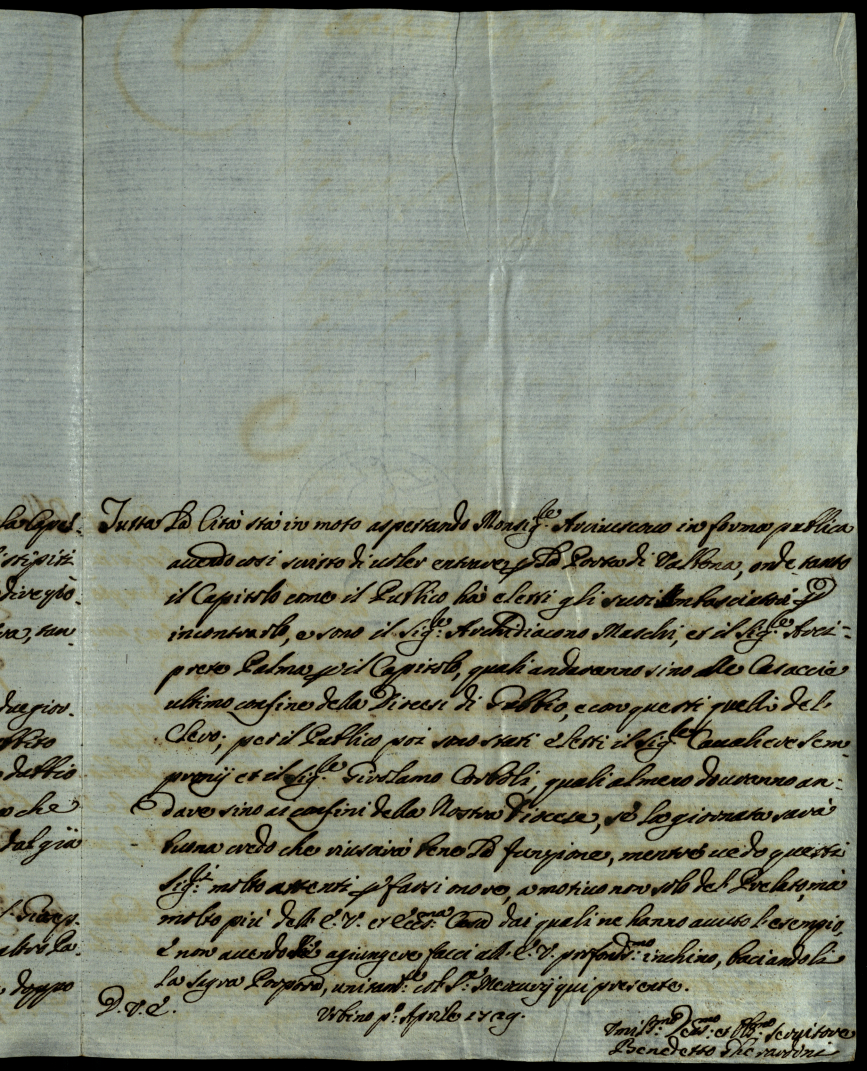 la Quel-
stipiti
di regio-
va, tan-
due gior-
subito
dubbio
o che
dal già
altro la-
doppo
Tutta la Cità stà in moto aspettando Monsig.re Arcivescovo in forma publica
avendo così scritto di voler entrare p la Porta di Valbona, onde tanto
il Capitolo come il Publico hà eletti gli suoi Imbasciatori p
incontrarlo, e sono il Sig.re Archidiacono Maschi, et il Sig.re Arci-
prete Palma p il Capitolo, quali andaranno sino alle Casaccie
ultimo confine della Diocesi di Gubbio, e con questi quelli del
Clero; per il Publico poi sono stati eletti il Sig.re Cavaliere Sem-
pronij et il Sig.re Girolamo Corboli, quali almeno dovranno an-
dare sino ai confini della Nostra Diocese, se la giornata sarà
buona credo che riuscirà bene la funzione, mentre vedo questi
Sig.ri molto attenti p farsi onore, a motivo non solo del Prelato, mà
molto più dell' E.V. et Ecc.ma Casa dai quali ne hanno avuto l'esempio,
è non avendo che agiungere facci all' E.V. profond.mo inchino, baciandoli
la Sagra Porpora, unitam.te col S.r Mercurij qui presente.
D. V. E.
Urbino p.o Aprile 1709.
Umil.mo Dev.mo et Obl.mo Servitore
Benedetto Gherardini